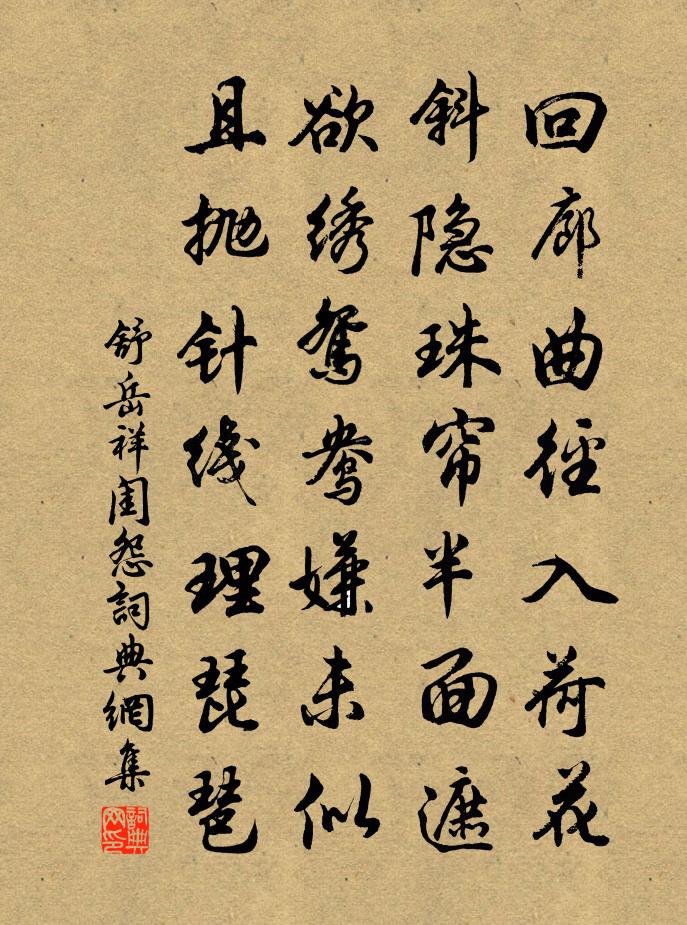 回廊曲径入荷花
斜隐珠帘半面遮
欲绣鸳鸯嫌未似
且抛针线理琵琶
舒岳祥闺怨詞典網集
詞典網印